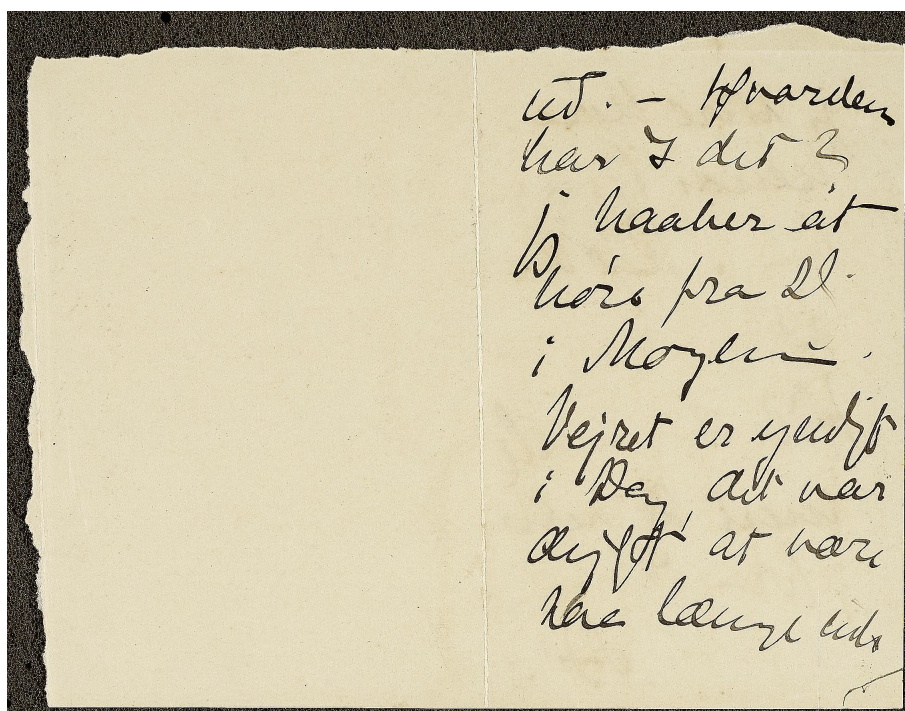 ud. – Hvordan
har I det?
jeg haaber at
høre fra D.
i Morgen.
Vejret er yndigt
i Dag, det var
at være
længe ude